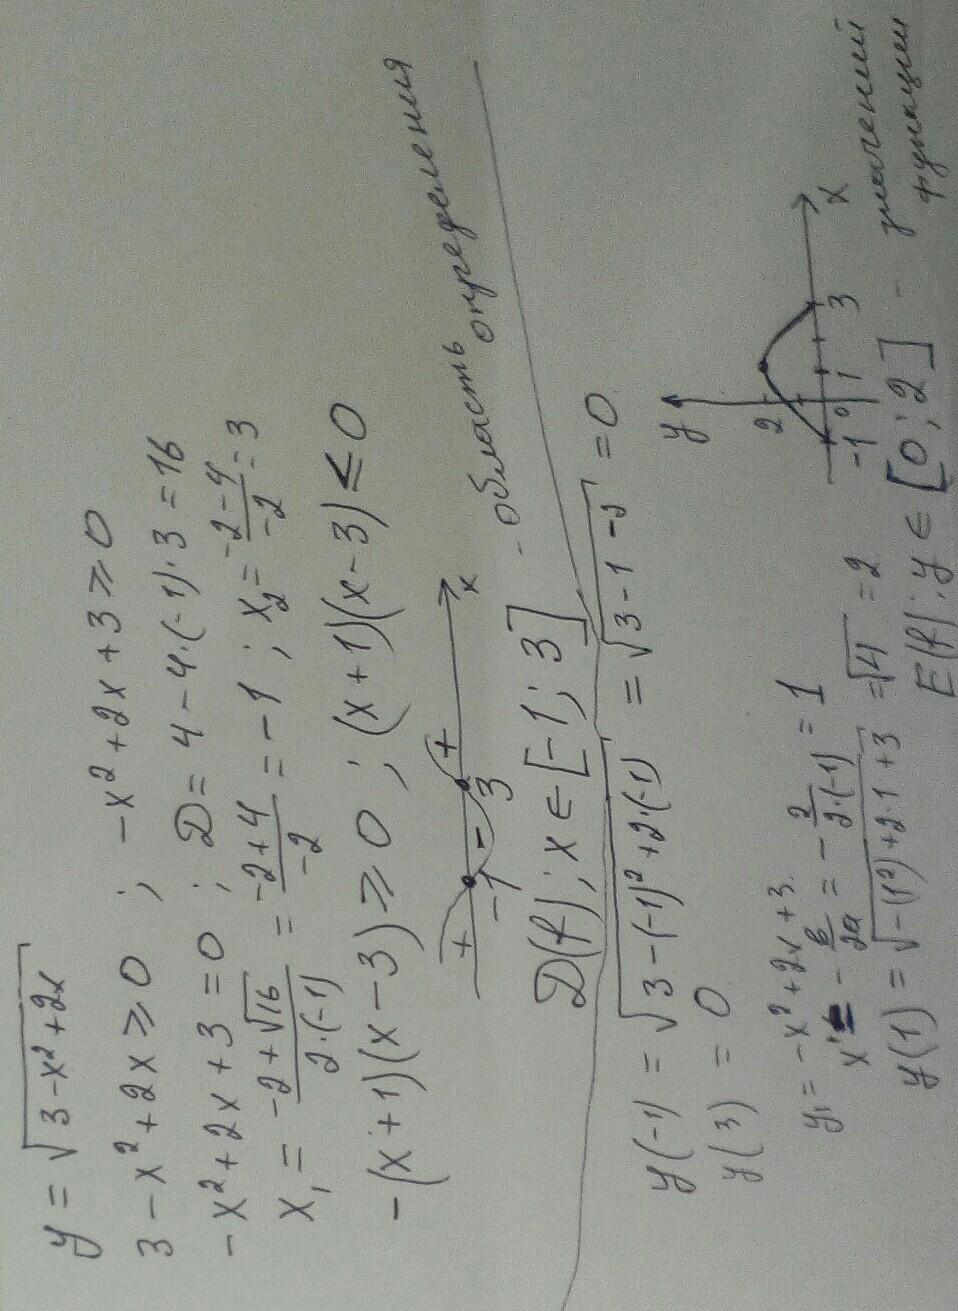 y = √(3-x²+2x)
3-x²+2x ≥ 0 ; -x²+2x+3 ≥ 0
-x²+2x+3=0 ; D=4-4·(-1)·3=16
x₁ = (-2+√16)/(2·(-1)) = (-2+4)/(-2) = -1 ; x₂ = (-2-4)/(-2) = 3
-(x+1)(x-3) ≥ 0 ; (x+1)(x-3) ≤ 0
+ - + x
-1 3
D(f); x ∈ [-1; 3] - область определения
y(-1) = √(3-(-1)²+2·(-1)) = √(3-1-2) = 0
y(3) = 0
y₁ = -x²+2x+3
x' = -в/2a = -2/(2·(-1)) = 1
y(1) = √(-(1²)+2·1+3) = √4 = 2
y
2
-1 0 1 3 x
E(f): y ∈ [0; 2] - значений функции